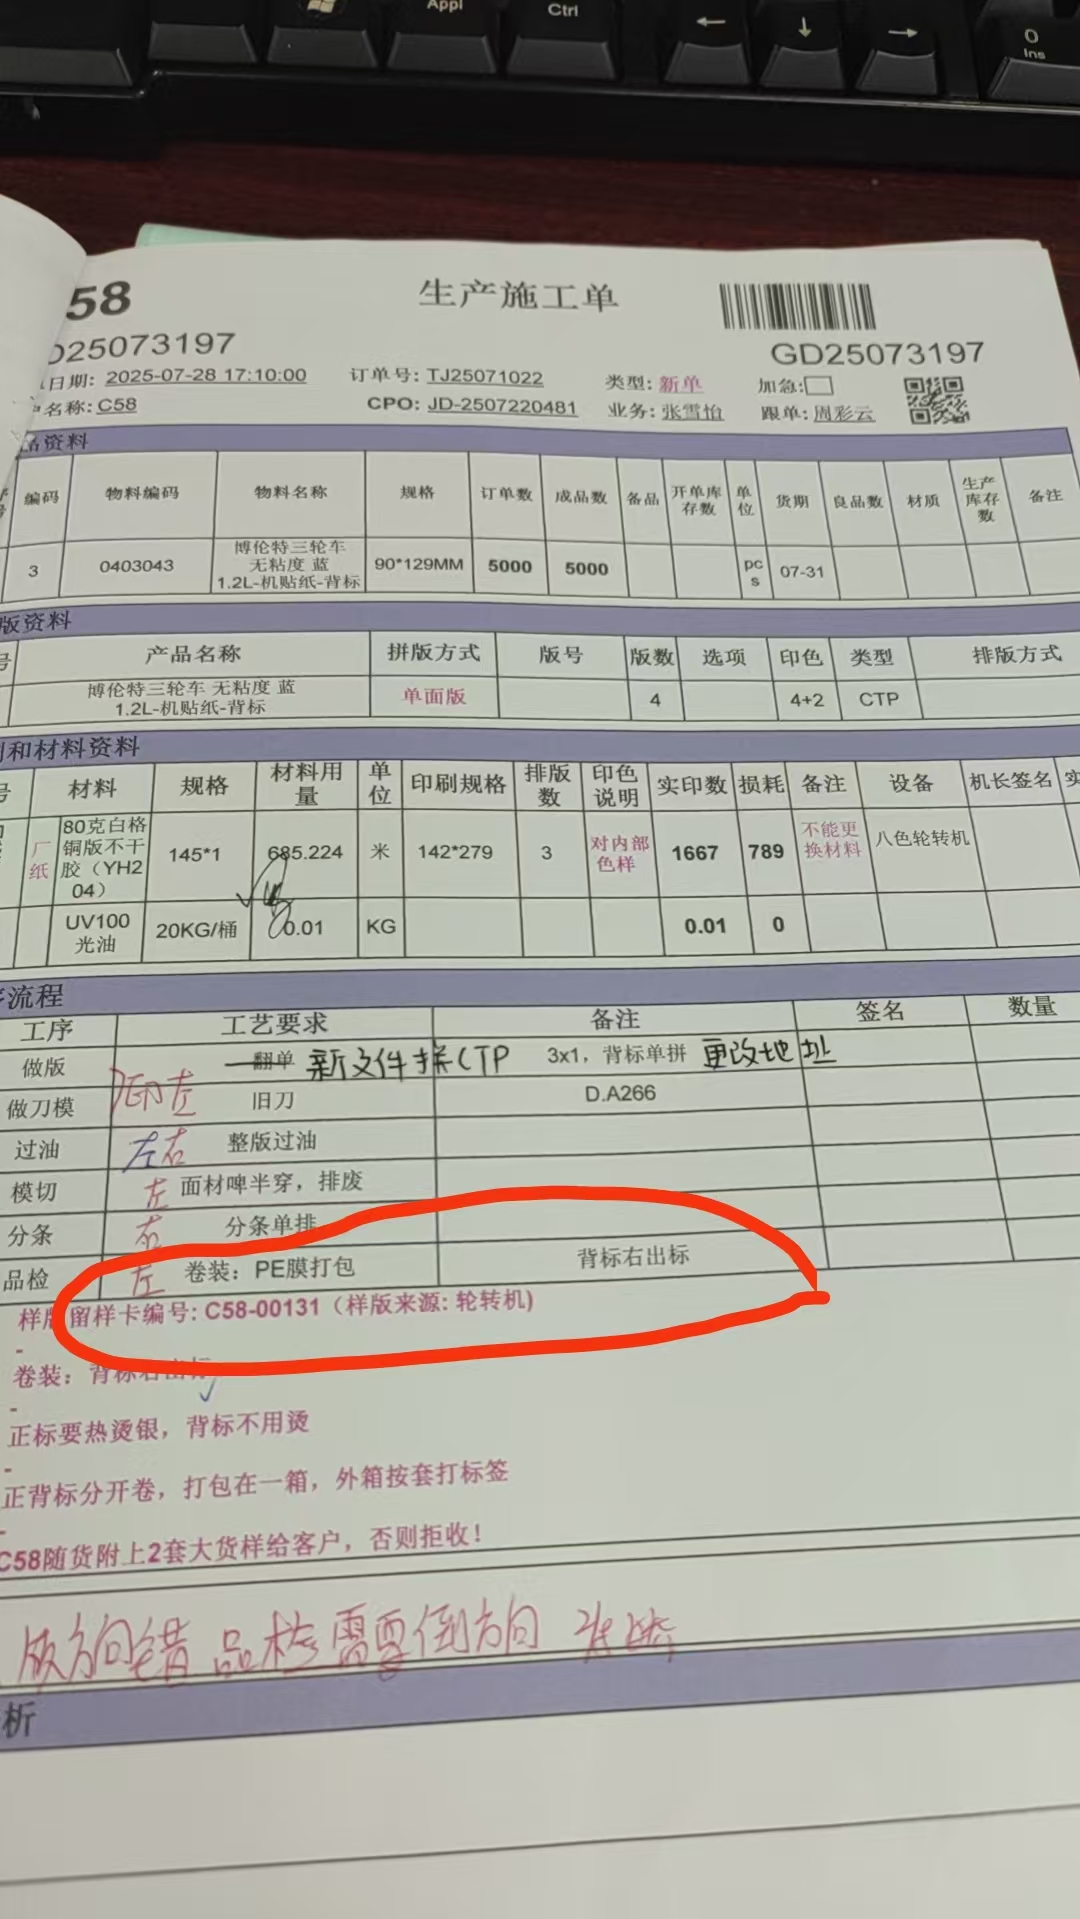 Appl
Ctrl
←
↓
→
0
Ins
58
生产施工单
D25073197
GD25073197
日期: 2025-07-28 17:10:00
订单号: TJ25071022
类型: 新单
加急:
名称: C58
CPO: JD-2507220481
业务: 张雪怡
跟单: 周彩云
品资料
号 编码 物料编码 物料名称 规格 订单数 成品数 备品 开单库存数 单位 货期 良品数 材质 生产库存数 备注
3 0403043 博伦特三轮车 无粘度 蓝 1.2L-机贴纸-背标 90*129MM 5000 5000 pcs 07-31
版资料
号 产品名称 拼版方式 版号 版数 选项 印色 类型 排版方式
博伦特三轮车 无粘度 蓝 1.2L-机贴纸-背标 单面版 4 4+2 CTP
和材料资料
号 材料 规格 材料用量 单位 印刷规格 排版数 印色说明 实印数 损耗 备注 设备 机长签名 实
厂纸 80克白格铜版不干胶（YH204） 145*1 685.224 米 142*279 3 对内部色样 1667 789 不能更换材料 八色轮转机
UV100光油 20KG/桶 0.01 KG 0.01 0
流程
工序 工艺要求 备注 签名 数量
做版 翻单 新文件拼CTP 3x1，背标单拼 更改地址
做刀模 印左 旧刀 D.A266
过油 左右 整版过油
模切 左 面材啤半穿，排废
分条 右 分条单排
品检 左 卷装：PE膜打包 背标右出标
样版留样卡编号: C58-00131（样版来源: 轮转机)
-
卷装：背标右出标
-
正标要热烫银，背标不用烫
-
正背标分开卷，打包在一箱，外箱按套打标签
-
C58随货附上2套大货样给客户，否则拒收！
版方向错 品检需要倒方向
析